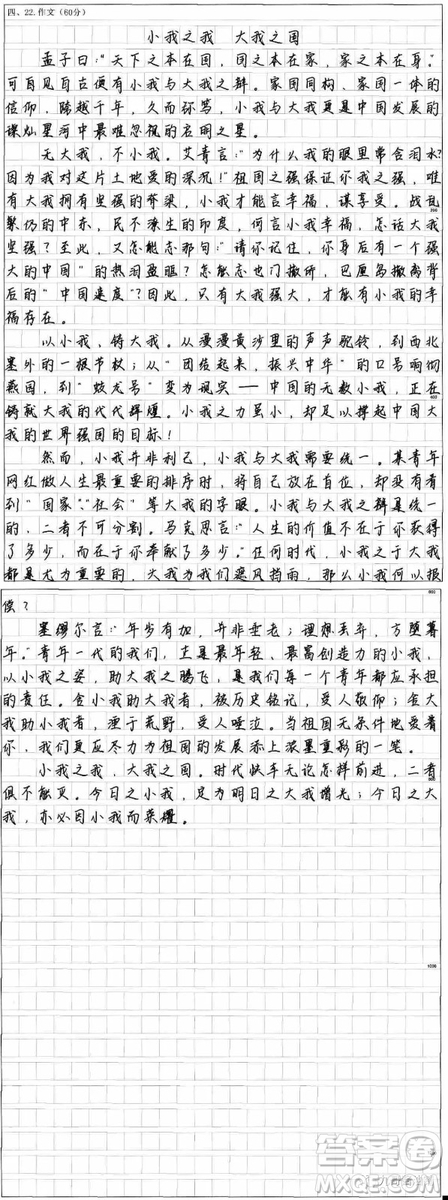 四、22.作文（60分）
小我之我 大我之国
孟子曰：“天下之本在国，国之本在家，家之本在身。”
可见自古便有小我与大我之辩。家国同构、家国一体的
信仰，跨越千年，久而弥笃，小我与大我更是中国发展的
璀灿星河中最难忽视的启明之星。
无大我，不小我。艾青言：“为什么我的眼里常含泪水？
因为我对这片土地爱的深沉！”祖国之强保证你我之强，唯
有大我拥有坚强的脊梁，小我才能言幸福，谋享受。战乱
频仍的中东，民不潦生的印度，何言小我幸福，怎话大我
坚强？至此，又怎能忘那句：“请你记住，你身后有一个强
大的中国”的热泪盈眶？怎能忘也门撤侨，巴厘岛撤离背
后的“中国速度”？因此，只有大我强大，才能有小我的幸
福存在。
以小我，铸大我。从漫漫黄沙里的声声驼铃，到西北
塞外的一根节杖；从“团结起来，振兴中华”的口号响彻
燕园，到“蛟龙号”变为现实——中国的无数小我，正在
铸就大我的代代辉煌。小我之力虽小，却足以撑起中国大
我的世界强国的目标！
然而，小我并非利己，小我与大我需要统一。某青年
网红做人生最重要的排序时，将自己放在首位，却没有看
到“国家”、“社会”等大我的字眼。小我与大我之辩是统一
的，二者不可分割。马克思言：“人生的价值不在于你获得
了多少，而在于你奉献了多少。”任何时代，小我之于大我
都是尤为重要的，大我为我们遮风挡雨，那么小我何以报
800
偿？
塞缪尔言：“年岁有加，并非垂老；理想丢弃，方堕暮
年。”青年一代的我们，正是最年轻、最富创造力的小我，
以小我之姿，助大我之腾飞，是我们每一个青年都应承担
的责任。舍小我助大我者，被历史铭记，受人敬仰；舍大
我助小我者，湮于荒野，受人唾泣。当祖国无条件地爱着
你，我们更应尽力为祖国的发展添上浓墨重彩的一笔。
小我之我，大我之国。时代快车无论怎样前进，二者
俱不能灭。今日之小我，足为明日之大我增光；今日之大
我，亦必因小我而荣耀。
1000
答案圈
MXQE.COM